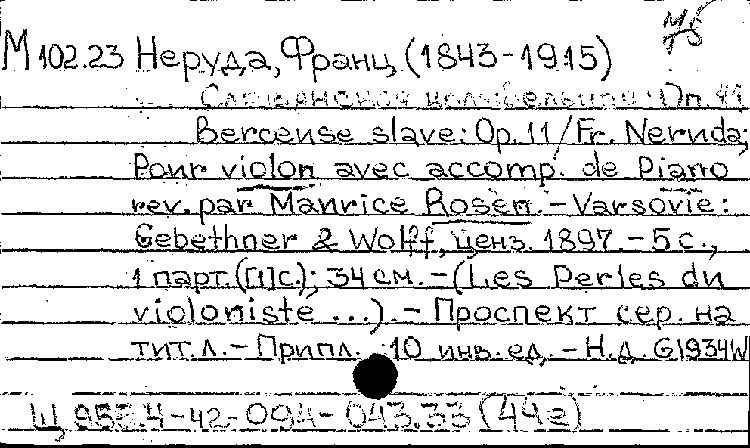 М 102.23 Неруда, Франц (1843-1915)
Славянская колыбельная: Оп. 11
Berceuse slave: Op. 11 / Fr. Neruda;
Pour violon avec accomp. de piano
rev. par Maurice Rosen. - Varsovie:
Gebethner & Wolff, ценз. 1897. - 5 с.,
1 парт. ([1]с.); 34 см. - (Les Perles du
violoniste ...). - Проспект сер. на
тит. л. - Припл. 10 инв. ед. - Н.д. G1934W
Ц 953.4-42-094-043.33 (44г)